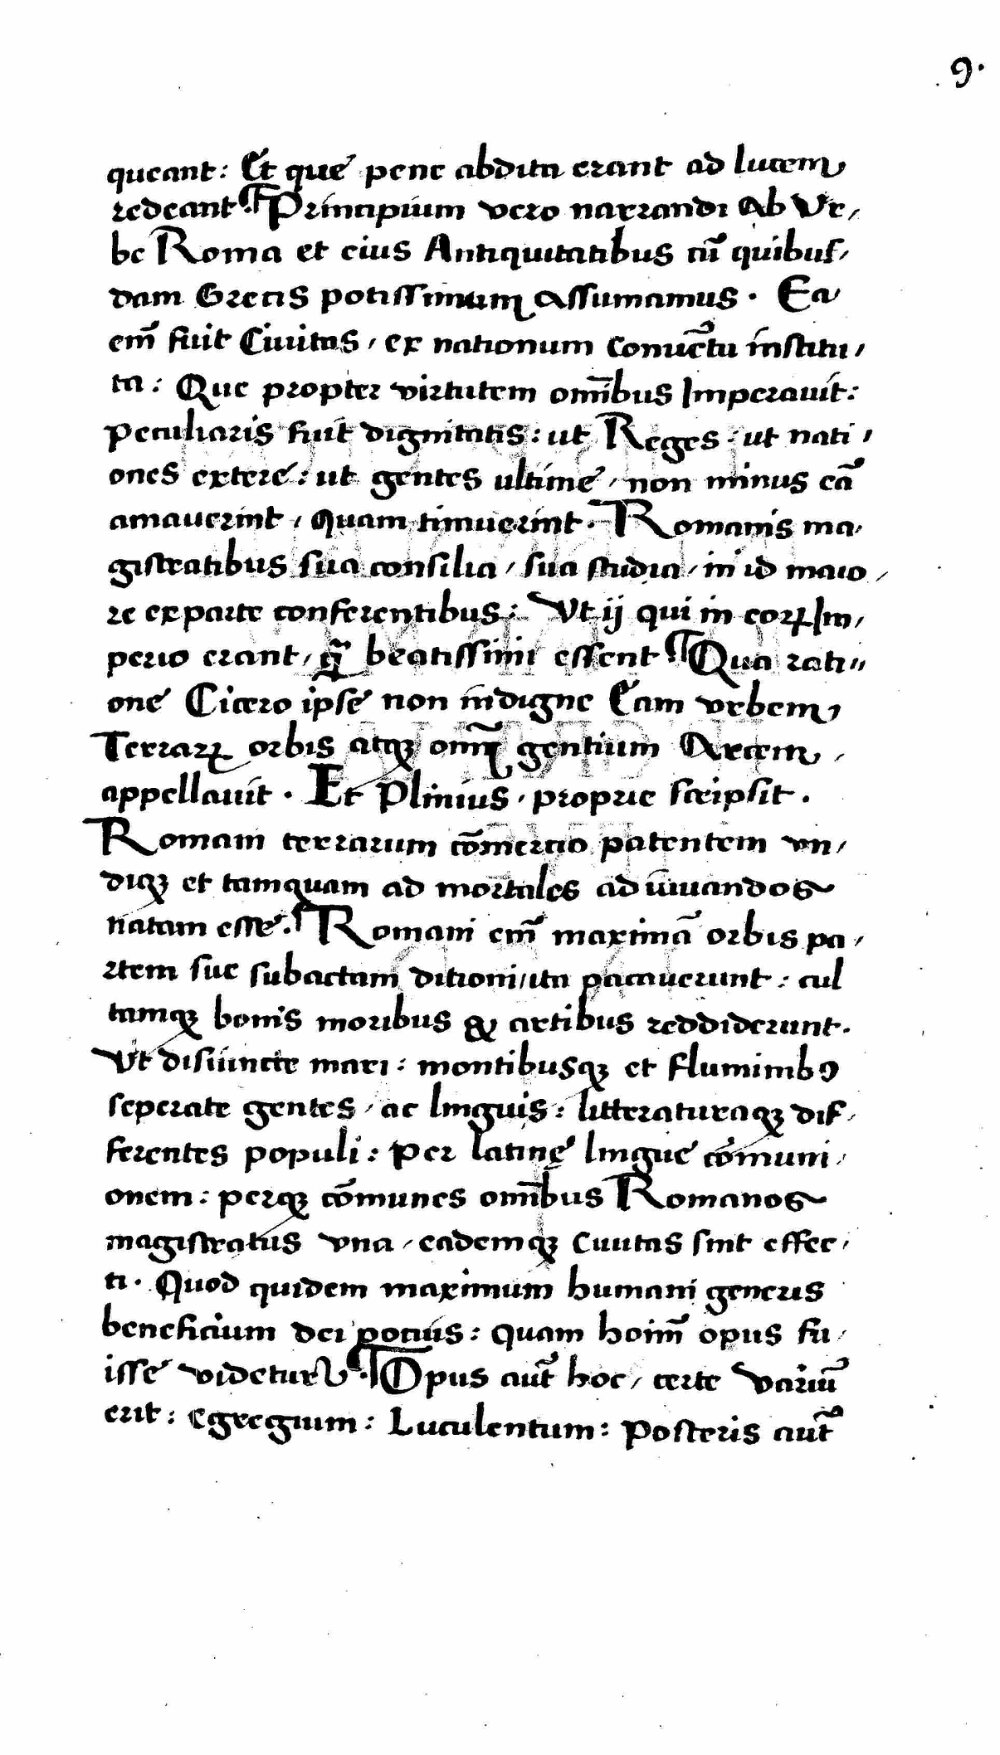 9.
queant: Et que pene abdita erant ad lucem
redeant. ¶ Principium vero narrandi Ab Vr,
be Roma et eius Antiquitatibus cū quibus,
dam Gretis potissimum Assumamus. Ea
em̄ fuit Ciuitas, ex nationum conuēctu institu,
ta: Que propter virtutem om̄ibus Imperauit:
peculiaris fuit dignitatis: ut Reges: ut nati,
ones extere: ut gentes ultime, non minus eā
amauerint, quam timuerint. Romanis ma,
gistratibus sua consilia, sua studia, in id maio,
re ex parte conferentibus: Vt ij qui in eoꝝ Im,
perio erant, ꝙ̄ beatissimi essent. ¶ Qua rati,,
one Cicero ipse non indigne Eam vrbem,
Terraꝝ orbis atqꝫ omī gentium Arcem,
appellauit. Et Plinius, proprie scripsit.
Romam terrarum cōmertio patentem vn,
diqꝫ et tamquam ad mortales adiuuandos
natam esse. ¶ Romani em̄ maximā orbis pa,
rtem sue subactam ditioni, ita pacauerunt: cul
tamqꝫ bonis moribus & artibus reddiderunt.
Vt disiuncte mari: montibusqꝫ et fluminibꝰ
seperate gentes, ac linguis: litteraturaqꝫ dif,
ferentes populi: Per latinę lingue cōmuni,
onem: perqꝫ cōmunes om̄ibus Romanos
magistratus vna, eademqꝫ Ciuitas sint effec,
ti. Quod quidem maximum humani generis
beneficium dei potius: quam hoim̄ opus fu,
isse videtur. ¶ Opus aut̄ hoc, certe variū
erit: egregium: Luculentum: posteris aut̄